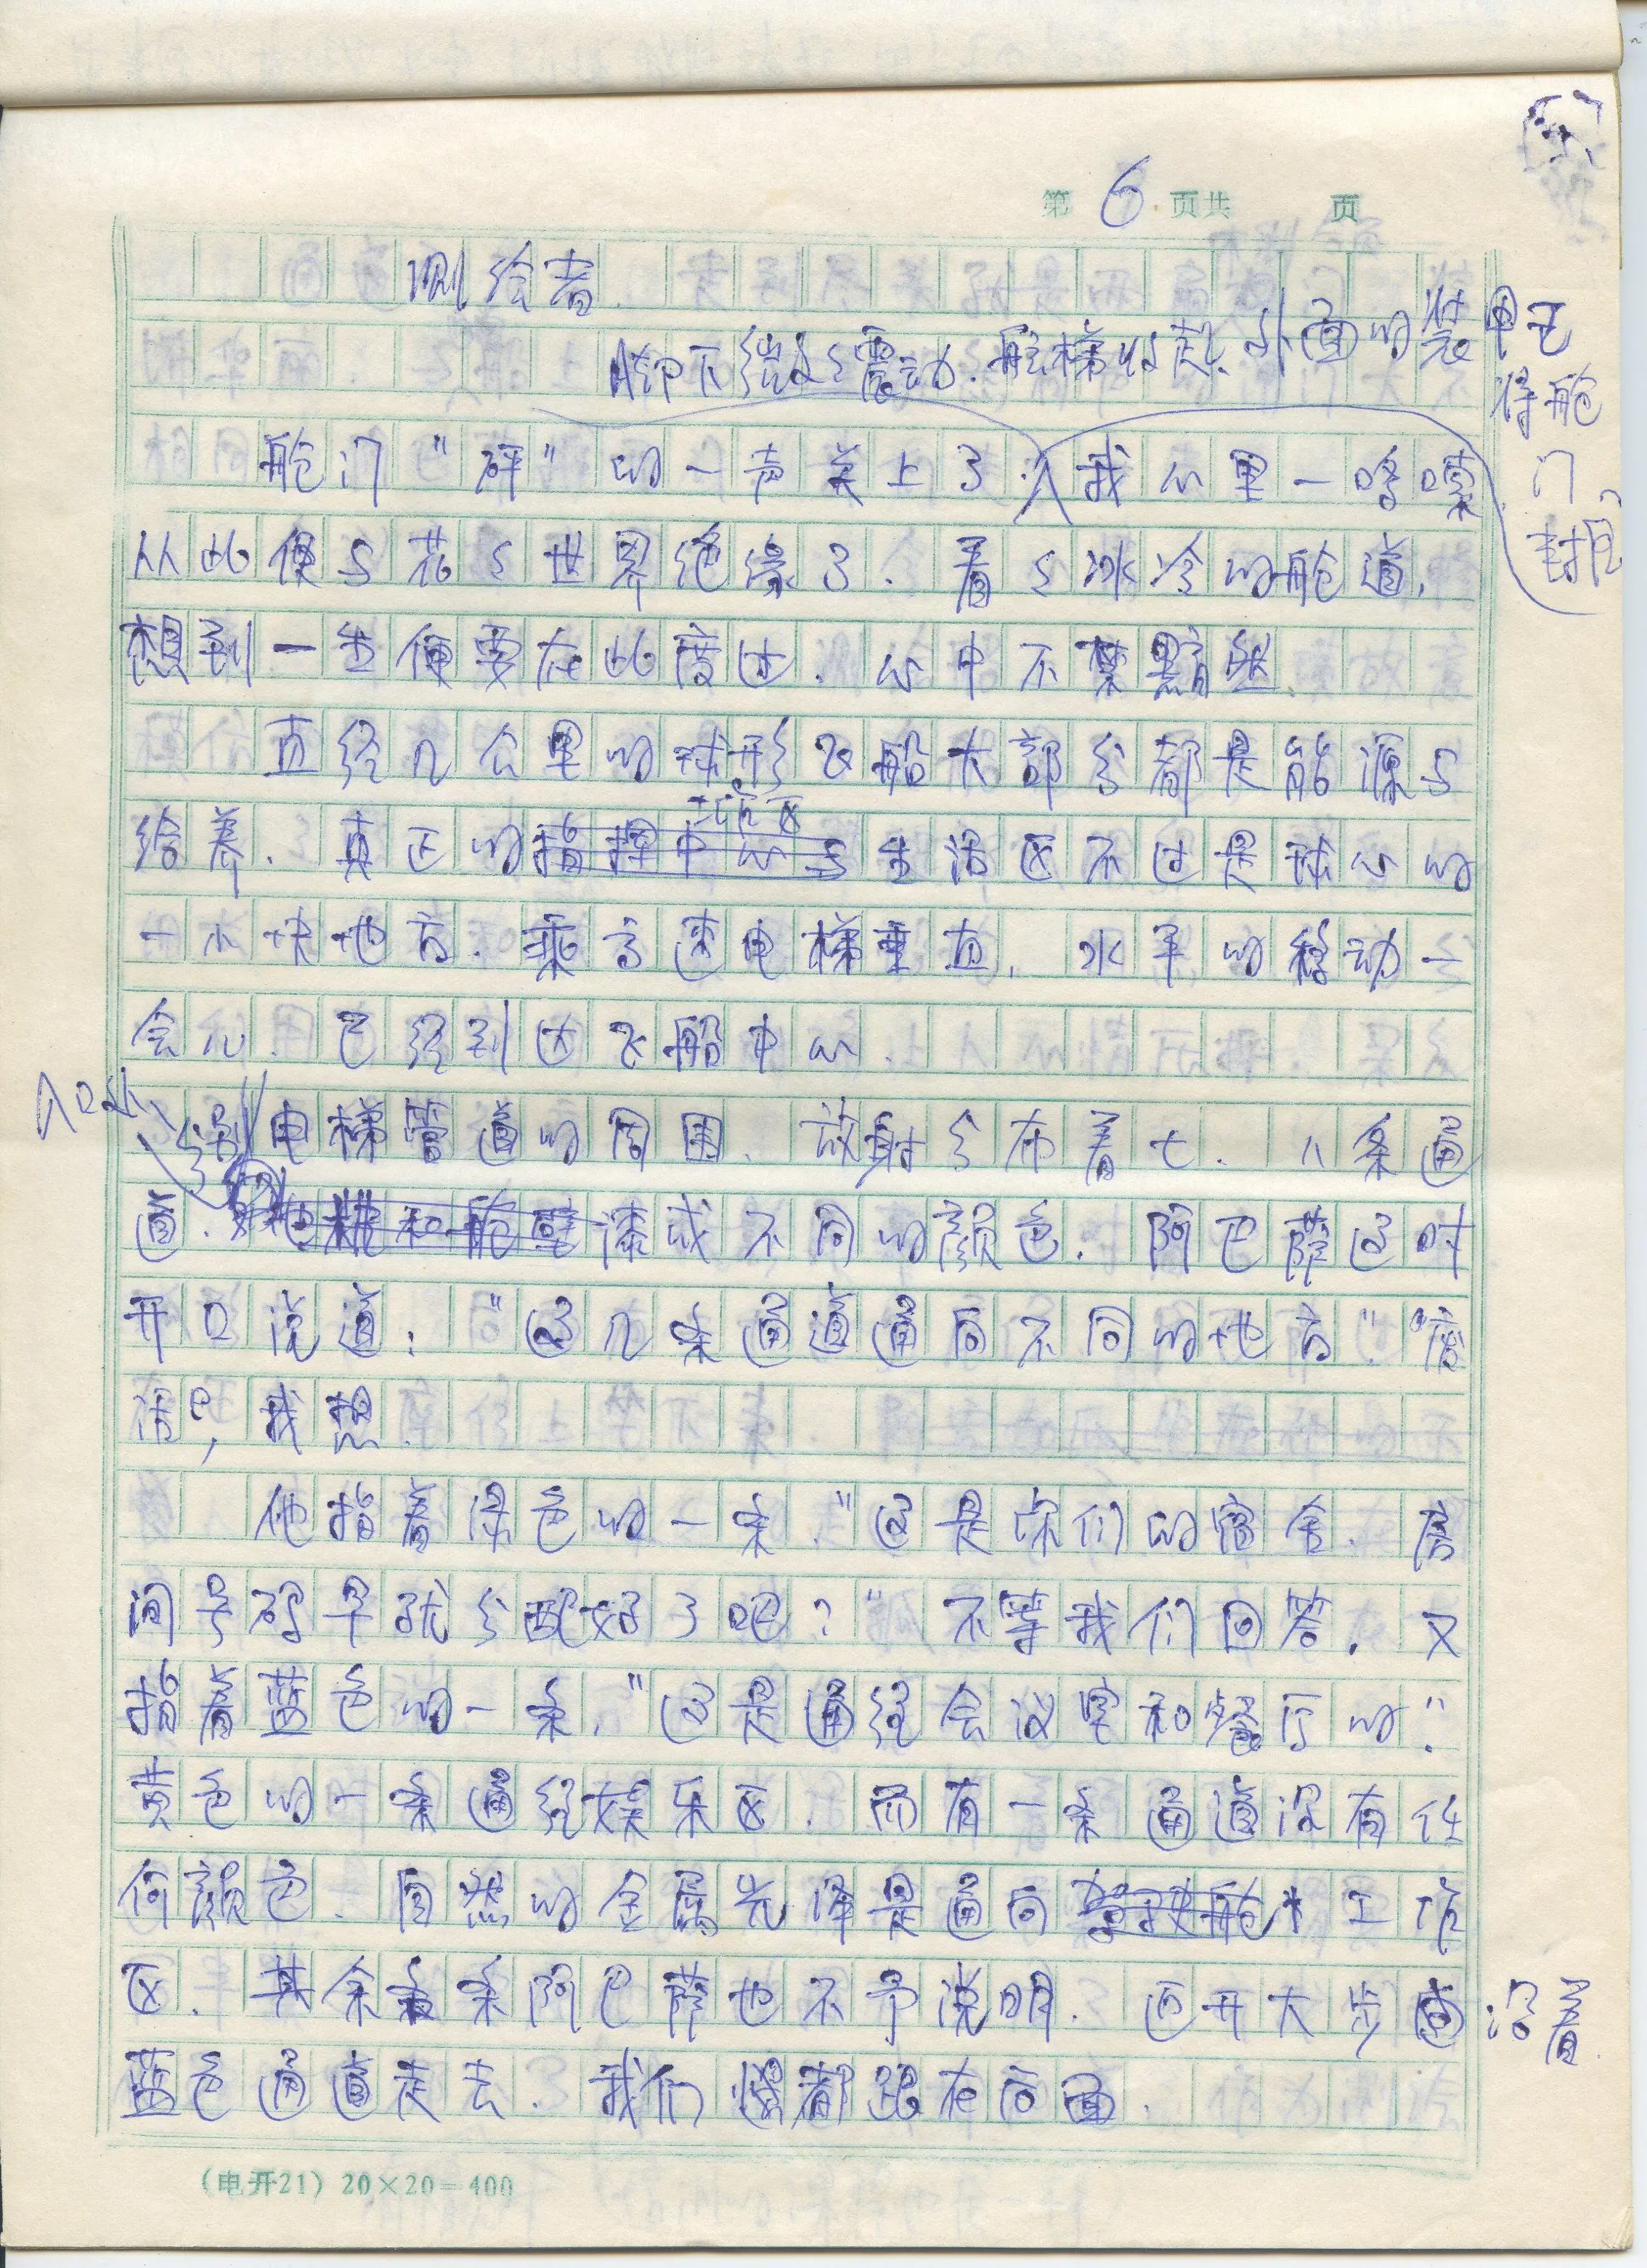 第 6 页共 页
测绘者
脚下微微震动.舷梯收起.外面的装甲已
将舱
门
封闭
舱门“砰”的一声关上了.我心里一咯噔
从此便与花花世界绝缘了.看着冰冷的舱道,
想到一生便要在此度过.心中不禁黯然.
直径几公里的球形飞船大部分都是能源与
给养.真正的指挥中心与生活区不过是球心的
工作区
一小块地方.乘高速电梯垂直,水平的移动一
会儿.已经到达飞船中心.
入口处
分别
电梯管道的周围.放射分布着七.八条通
道.漆成不同的颜色.阿巴萨这时
开口说道:“这几条通道通向不同的地方”.“废
话”,我想.
他指着绿色的一条.“这是你们的宿舍.房
间号码早就分配好了吧?”不等我们回答.又
指着蓝色的一条,“这是通往会议室和餐厅的”.
黄色的一条通往娱乐区.而有一条通道没有任
何颜色.自然的金属光泽是通向驾驶舱工作
区.其余各条阿巴萨也不予说明.迈开大步沿着
蓝色通道走去.我们都跟在后面.
(电开21) 20×20=400